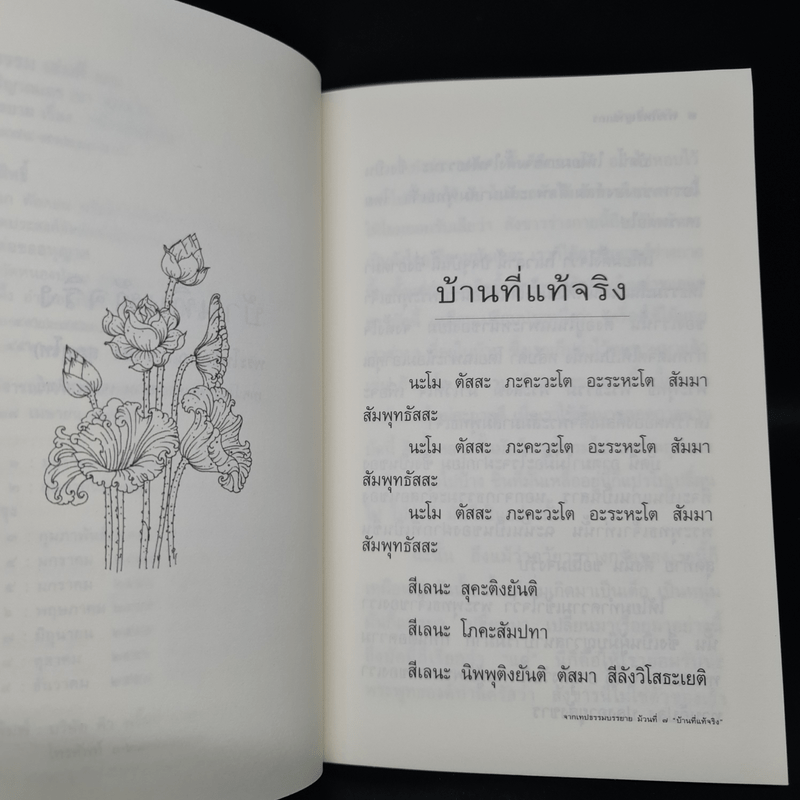 บ้านที่แท้จริง
นะโม ตัสสะ ภะคะวะโต อะระหะโต สัมมา
สัมพุทธัสสะ
นะโม ตัสสะ ภะคะวะโต อะระหะโต สัมมา
สัมพุทธัสสะ
นะโม ตัสสะ ภะคะวะโต อะระหะโต สัมมา
สัมพุทธัสสะ
สีเลนะ สุคะติงยันติ
สีเลนะ โภคะสัมปทา
สีเลนะ นิพพุติงยันติ ตัสมา สีลังวิโสธะเยติ
จากเทปธรรมบรรยาย ม้วนที่ ๗ "บ้านที่แท้จริง"